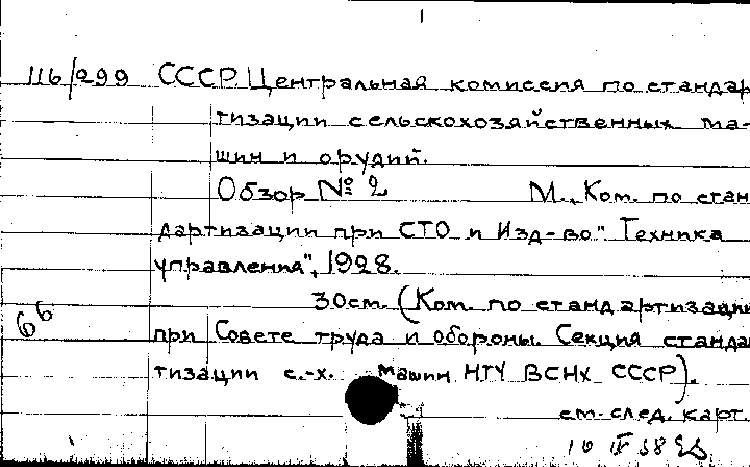 116/299 СССР. Центральная комиссия по стандар
тизации сельскохозяйственных ма-
шин и орудий.
Обзор № 2 М., Ком. по стан
дартизации при СТО и Изд-во "Техника
управления", 1928.
30см. (Ком. по стандартизации
66
при Совете труда и обороны. Секция станда
тизации с.-х. машин НТУ ВСНХ СССР).
см. след. карт.